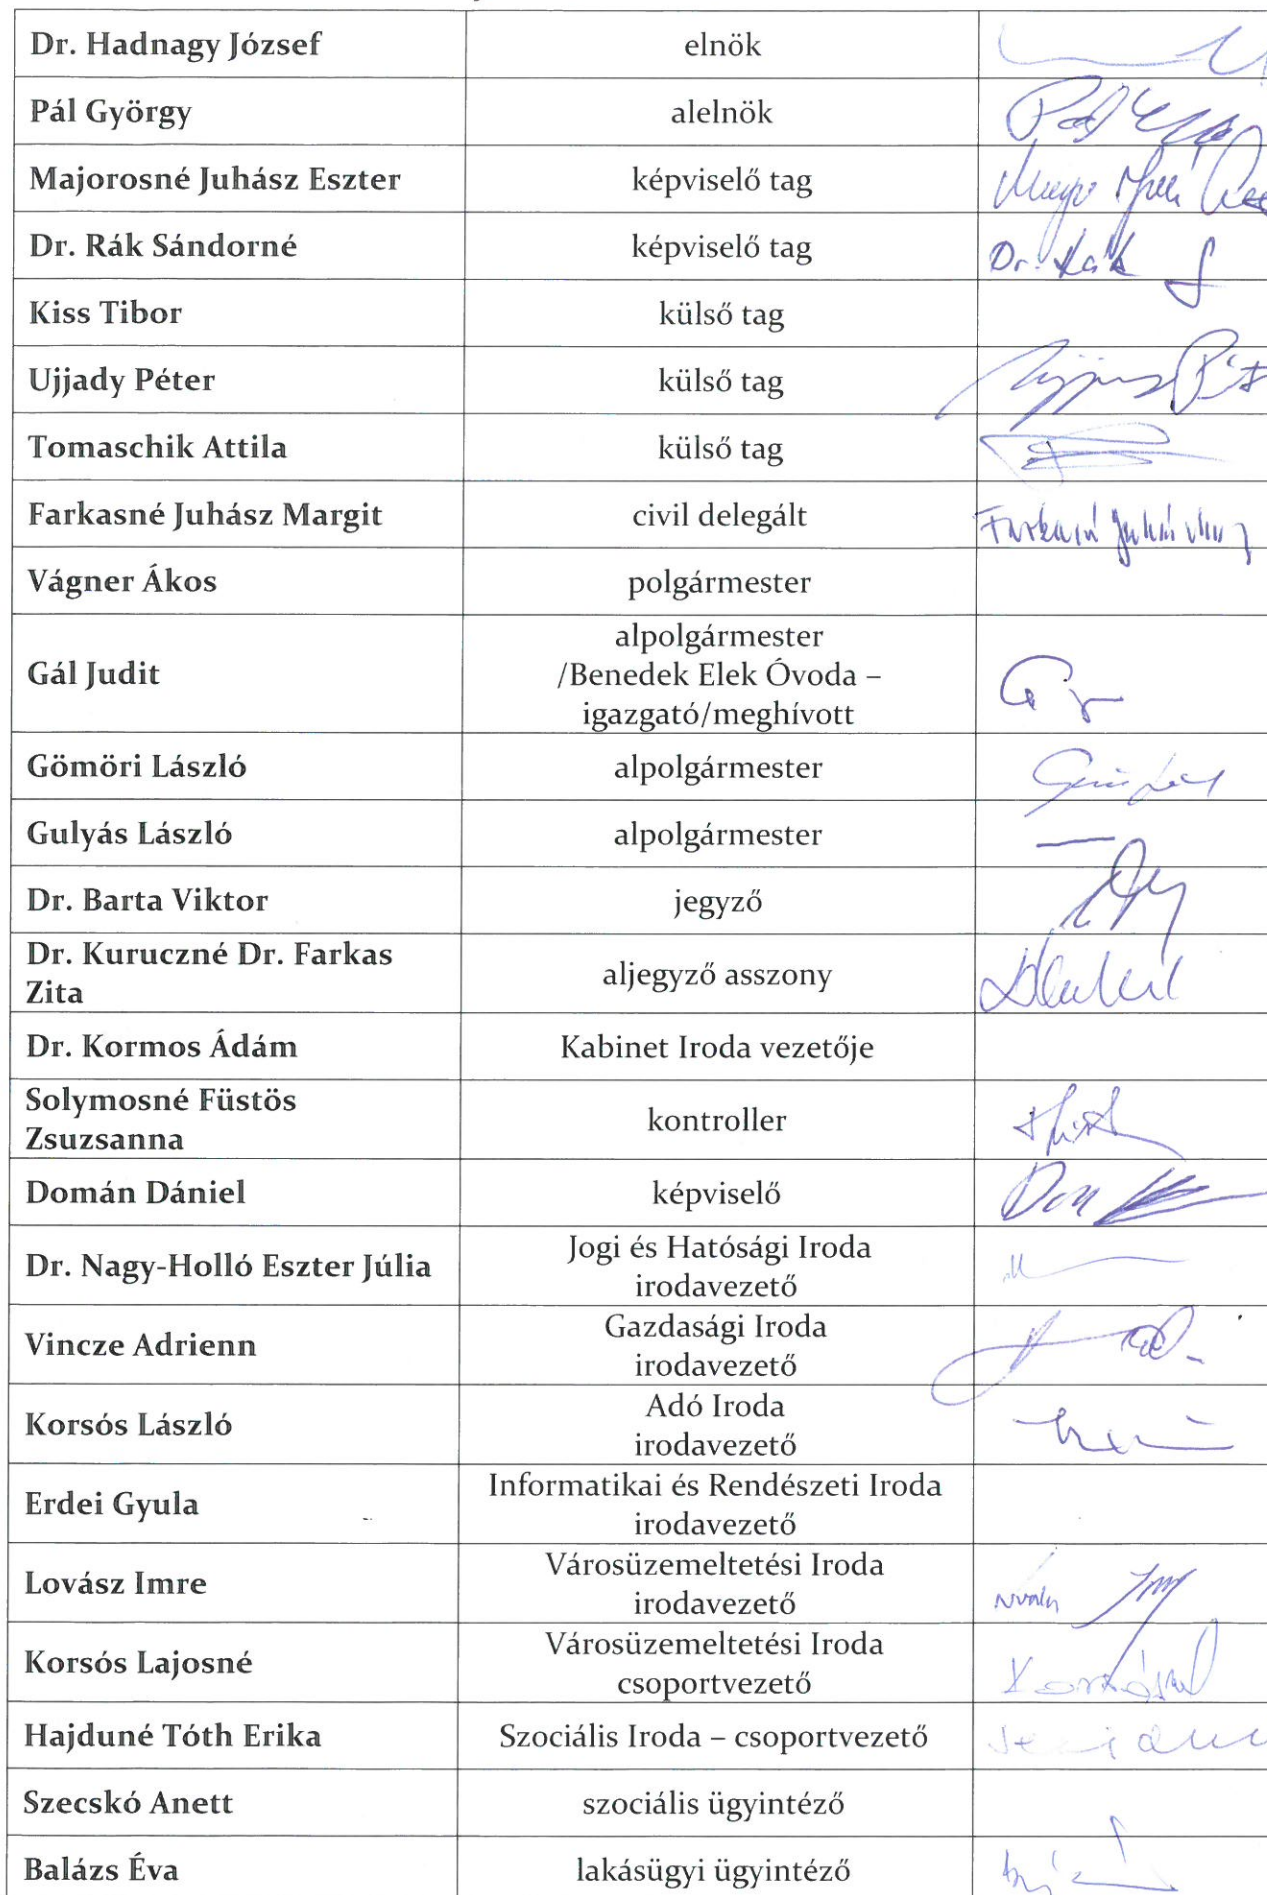 Dr. Hadnagy József elnök
Pál György alelnök
Majorosné Juhász Eszter képviselő tag
Dr. Rák Sándorné képviselő tag Dr. Rák S
Kiss Tibor külső tag
Ujjady Péter külső tag
Tomaschik Attila külső tag
Farkasné Juhász Margit civil delegált
Vágner Ákos polgármester
Gál Judit
alpolgármester
/Benedek Elek Óvoda –
igazgató/meghívott
Gömöri László alpolgármester
Gulyás László alpolgármester
Dr. Barta Viktor jegyző
Dr. Kuruczné Dr. Farkas
Zita
aljegyző asszony
Dr. Kormos Ádám Kabinet Iroda vezetője
Solymosné Füstös
Zsuzsanna
kontroller
Domán Dániel képviselő
Dr. Nagy-Holló Eszter Júlia
Jogi és Hatósági Iroda
irodavezető
Vincze Adrienn
Gazdasági Iroda
irodavezető
Korsós László
Adó Iroda
irodavezető
Erdei Gyula
Informatikai és Rendészeti Iroda
irodavezető
Lovász Imre
Városüzemeltetési Iroda
irodavezető
Korsós Lajosné
Városüzemeltetési Iroda
csoportvezető
Hajduné Tóth Erika Szociális Iroda – csoportvezető
Szecskó Anett szociális ügyintéző
Balázs Éva lakásügyi ügyintéző